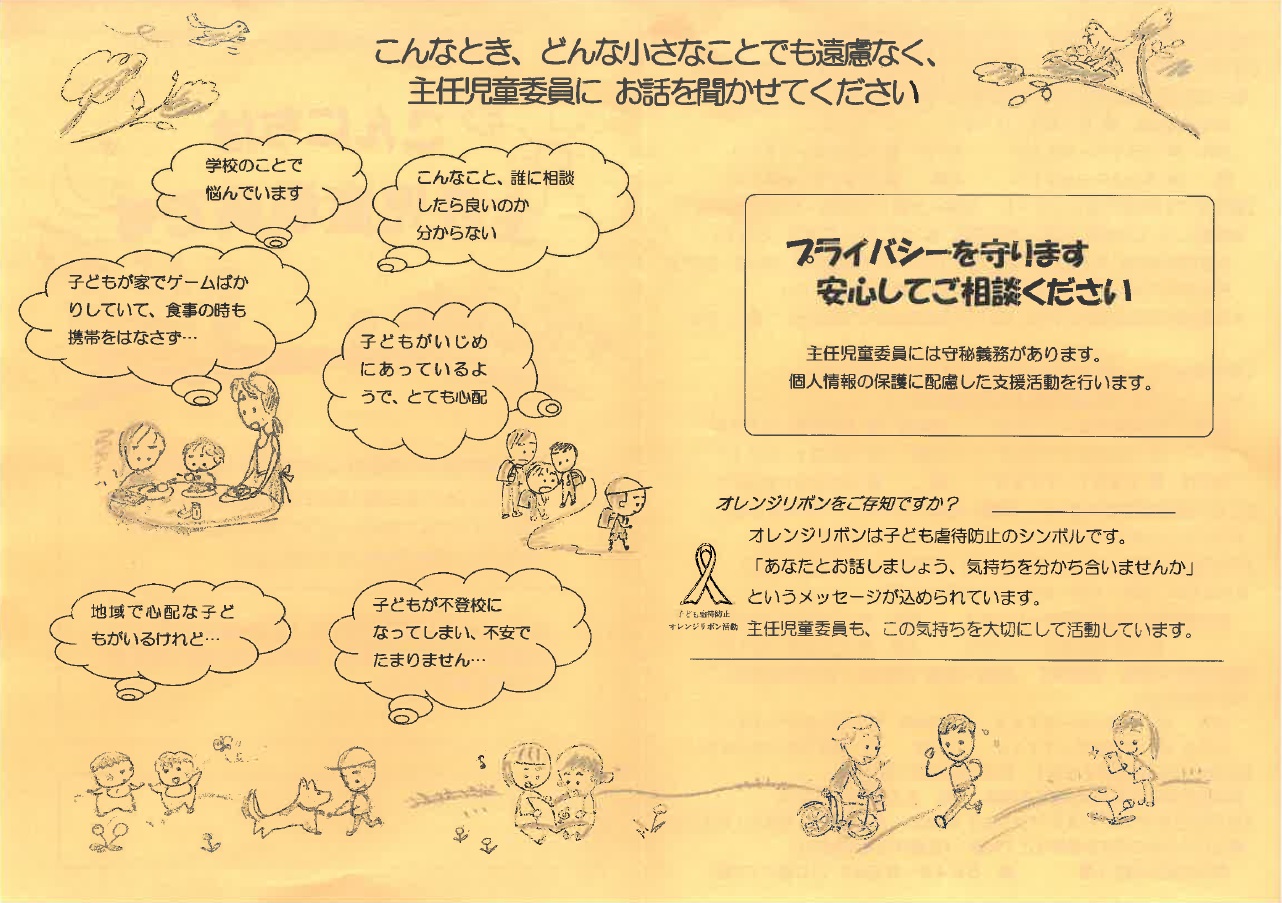 こんなとき、どんな小さなことでも遠慮なく、
主任児童委員に お話を聞かせてください
学校のことで
悩んでいます
こんなこと、誰に相談
したら良いのか
分からない
子どもが家でゲームばか
りしていて、食事の時も
携帯をはなさず…
子どもがいじめ
にあっているよ
うで、とても心配
地域で心配な子ど
もがいるけれど…
子どもが不登校に
なってしまい、不安で
たまりません…
プライバシーを守ります
安心してご相談ください
主任児童委員には守秘義務があります。
個人情報の保護に配慮した支援活動を行います。
オレンジリボンをご存知ですか？
オレンジリボンは子ども虐待防止のシンボルです。
「あなたとお話しましょう、気持ちを分かち合いませんか」
というメッセージが込められています。
主任児童委員も、この気持ちを大切にして活動しています。
子ども虐待防止
オレンジリボン活動